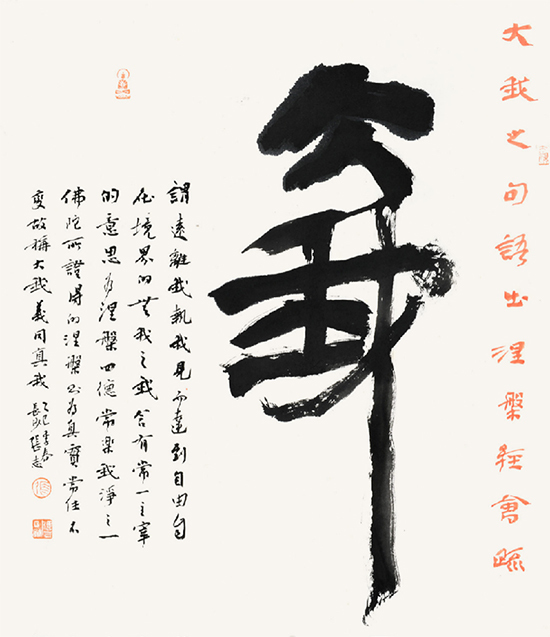 大我之句語出涅槃經會疏
大我
謂遠離我執我見而達到自由自
在境界的無我之我含有常一主宰
的意思為涅槃四德常樂我淨之一
佛陀所證得的涅槃為真實常住不
變故稱大我義同真我
乙巳季春